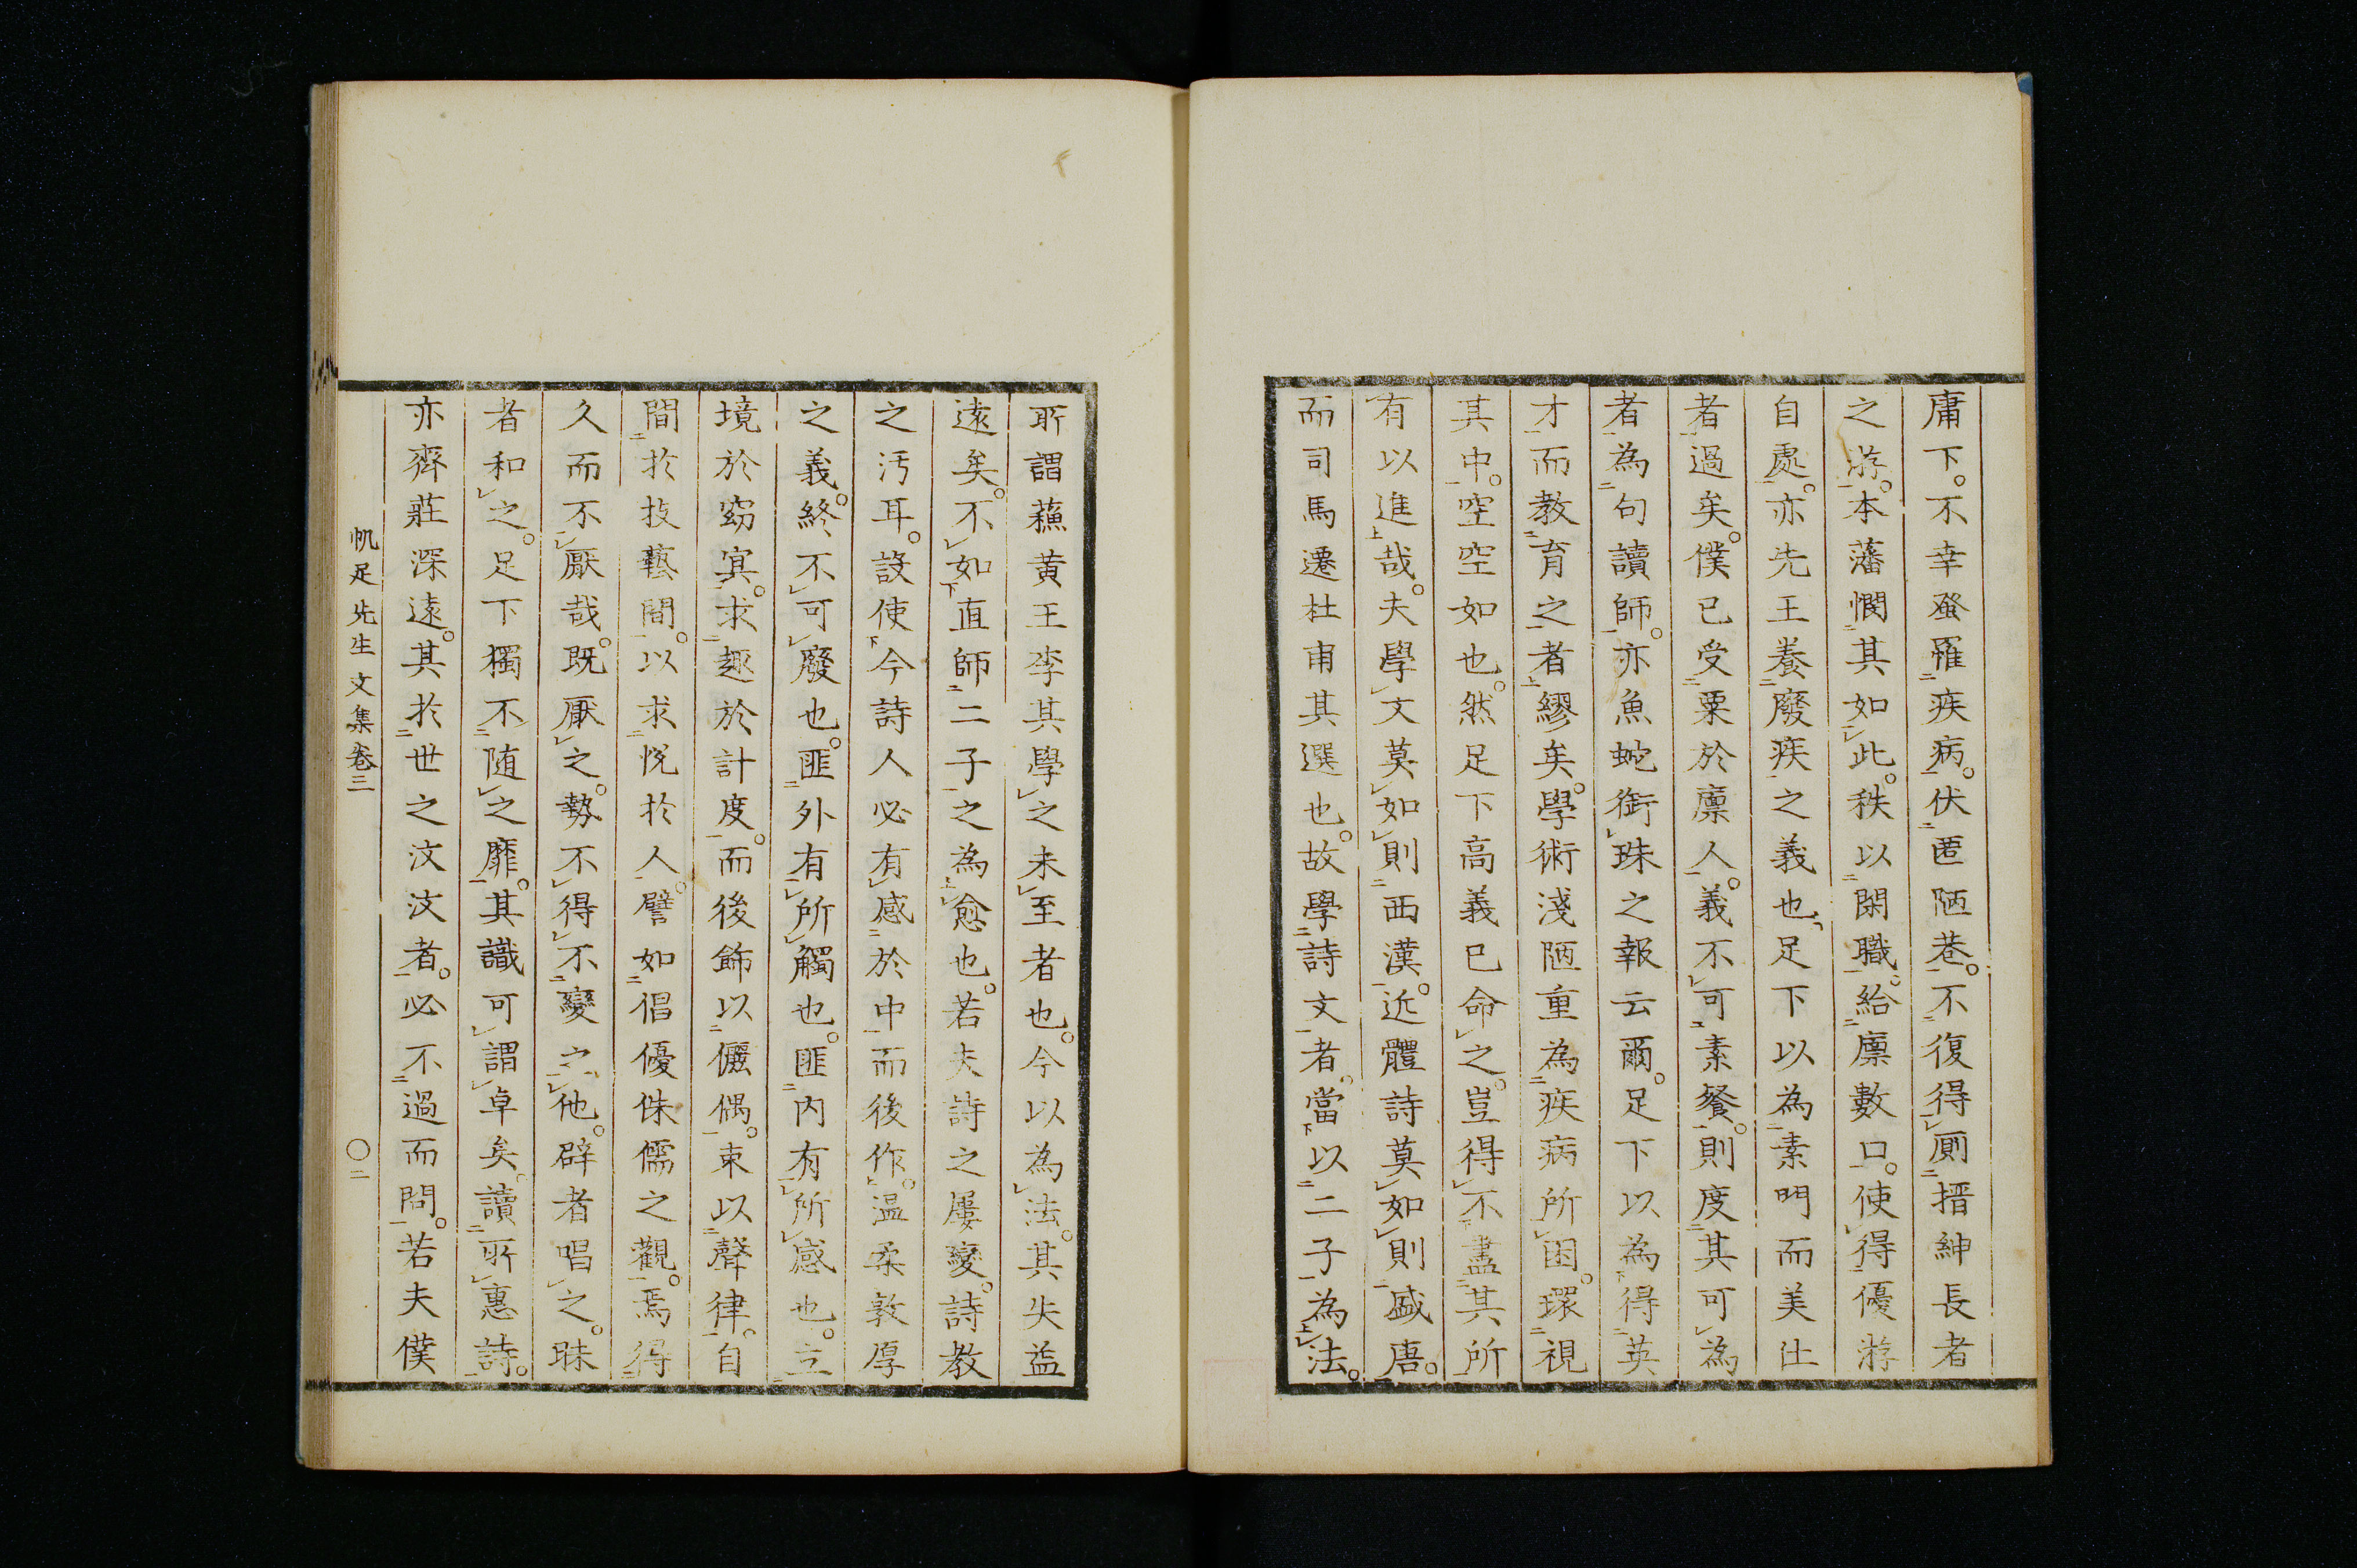 庸下。不幸發罹疾病。伏匿陋巷。不復得厠搢紳長者
之游。本藩憫其如此。秩以閑職。給廩數口。使得優游
自處。亦先王養廢疾之義也。足下以為素門而美仕
者過矣。僕已受粟於廩人。義不可素餐。則度其可為
者為句讀師。亦魚蛇銜珠之報云爾。足下以為得英
才而教育之者繆矣。學術淺陋重為疾病所困。環視
其中。空空如也。然足下高義已命之。豈得不盡其所
有以進哉。夫學文莫如則西漢。近體詩莫如則盛唐。
而司馬遷杜甫其選也。故學詩文者。當以二子為法。
所謂蘓黄王李其學之未至者也。今以為法。其失益
遠矣。不如直師二子之為愈也。若夫詩之屢變。詩教
之汚耳。設使今詩人必有感於中而後作。温柔敦厚
之義。終不可廢也。匪外有所觸也。匪内有所感也。立
境於窈冥。求趣於計度。而後飾以儷偶。束以聲律。自
間於技藝間。以求悅於人。譬如倡優侏儒之觀。焉得
久而不厭哉。既厭之。勢不得不變之他。辟者唱之。昧
者和之。足下獨不随之靡。其識可謂卓矣。讀所惠詩。
亦齊莊深遠。其於世之汶汶者。必不過而問。若夫僕
帆足先生文集卷三 〇二